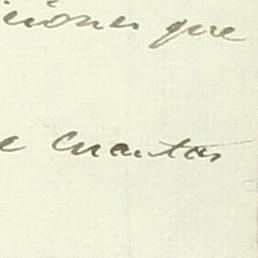 iciones que
e cuantas